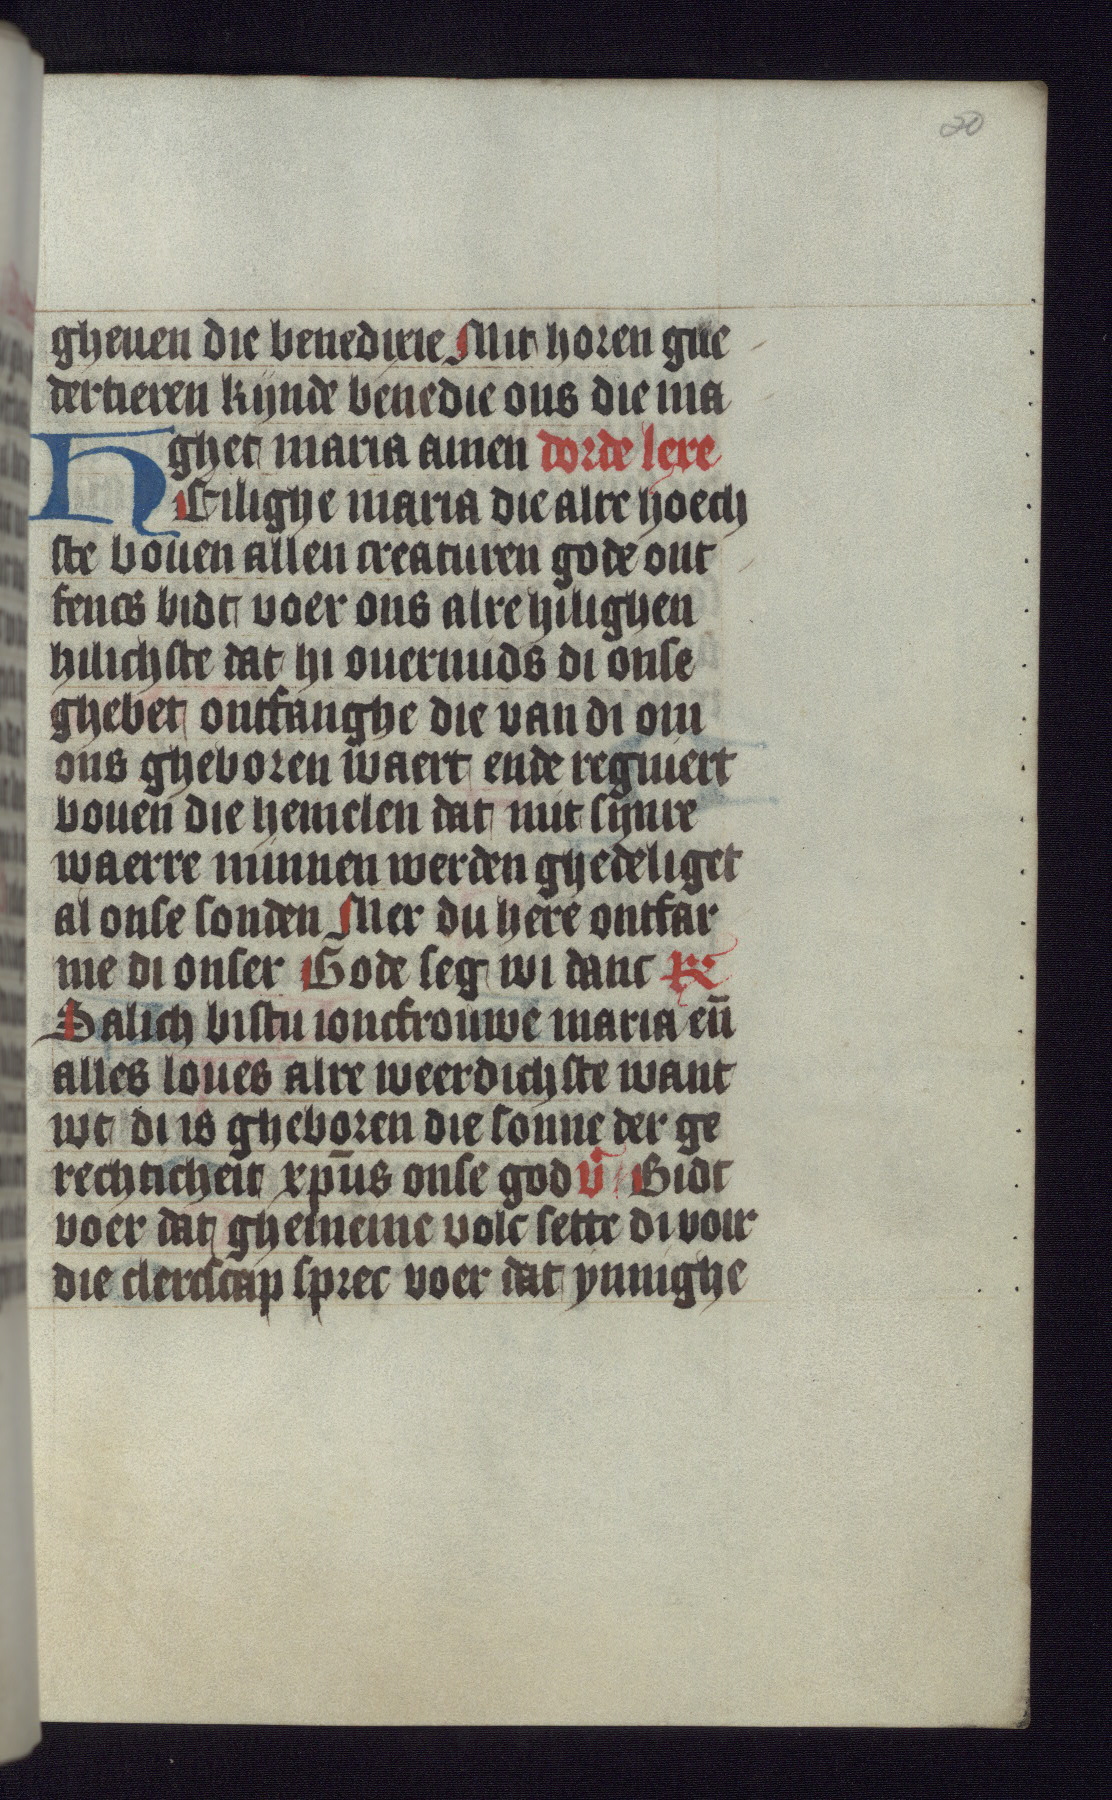 20
gheuen die benedixie Mit horen gue
dertieren kijnde benedie ons die ma
ghet maria amen dorde lere
HEilighe maria die alre hoech
ste bouen allen creaturen gode ont
fencs bidt voer ons alre hilighen
hilichste dat hi ouermids di onse
ghebet ontfanghe die van di om
ons gheboren waert ende regniert
bouen die hemelen dat mit sijnre
waerre minnen werden ghedeliget
al onse sonden Mer du here ontfar
me di onser Gode seg wi danc
Salich bistu ioncfrouwe maria en̄
alles loues alre weerdichste want
wt di is gheboren die sonne der ge
rechticheit xp̄us onse god v̄ Bidt
voer dat ghemeine volc sette di voir
die clercscap sprec voer dat ynnighe